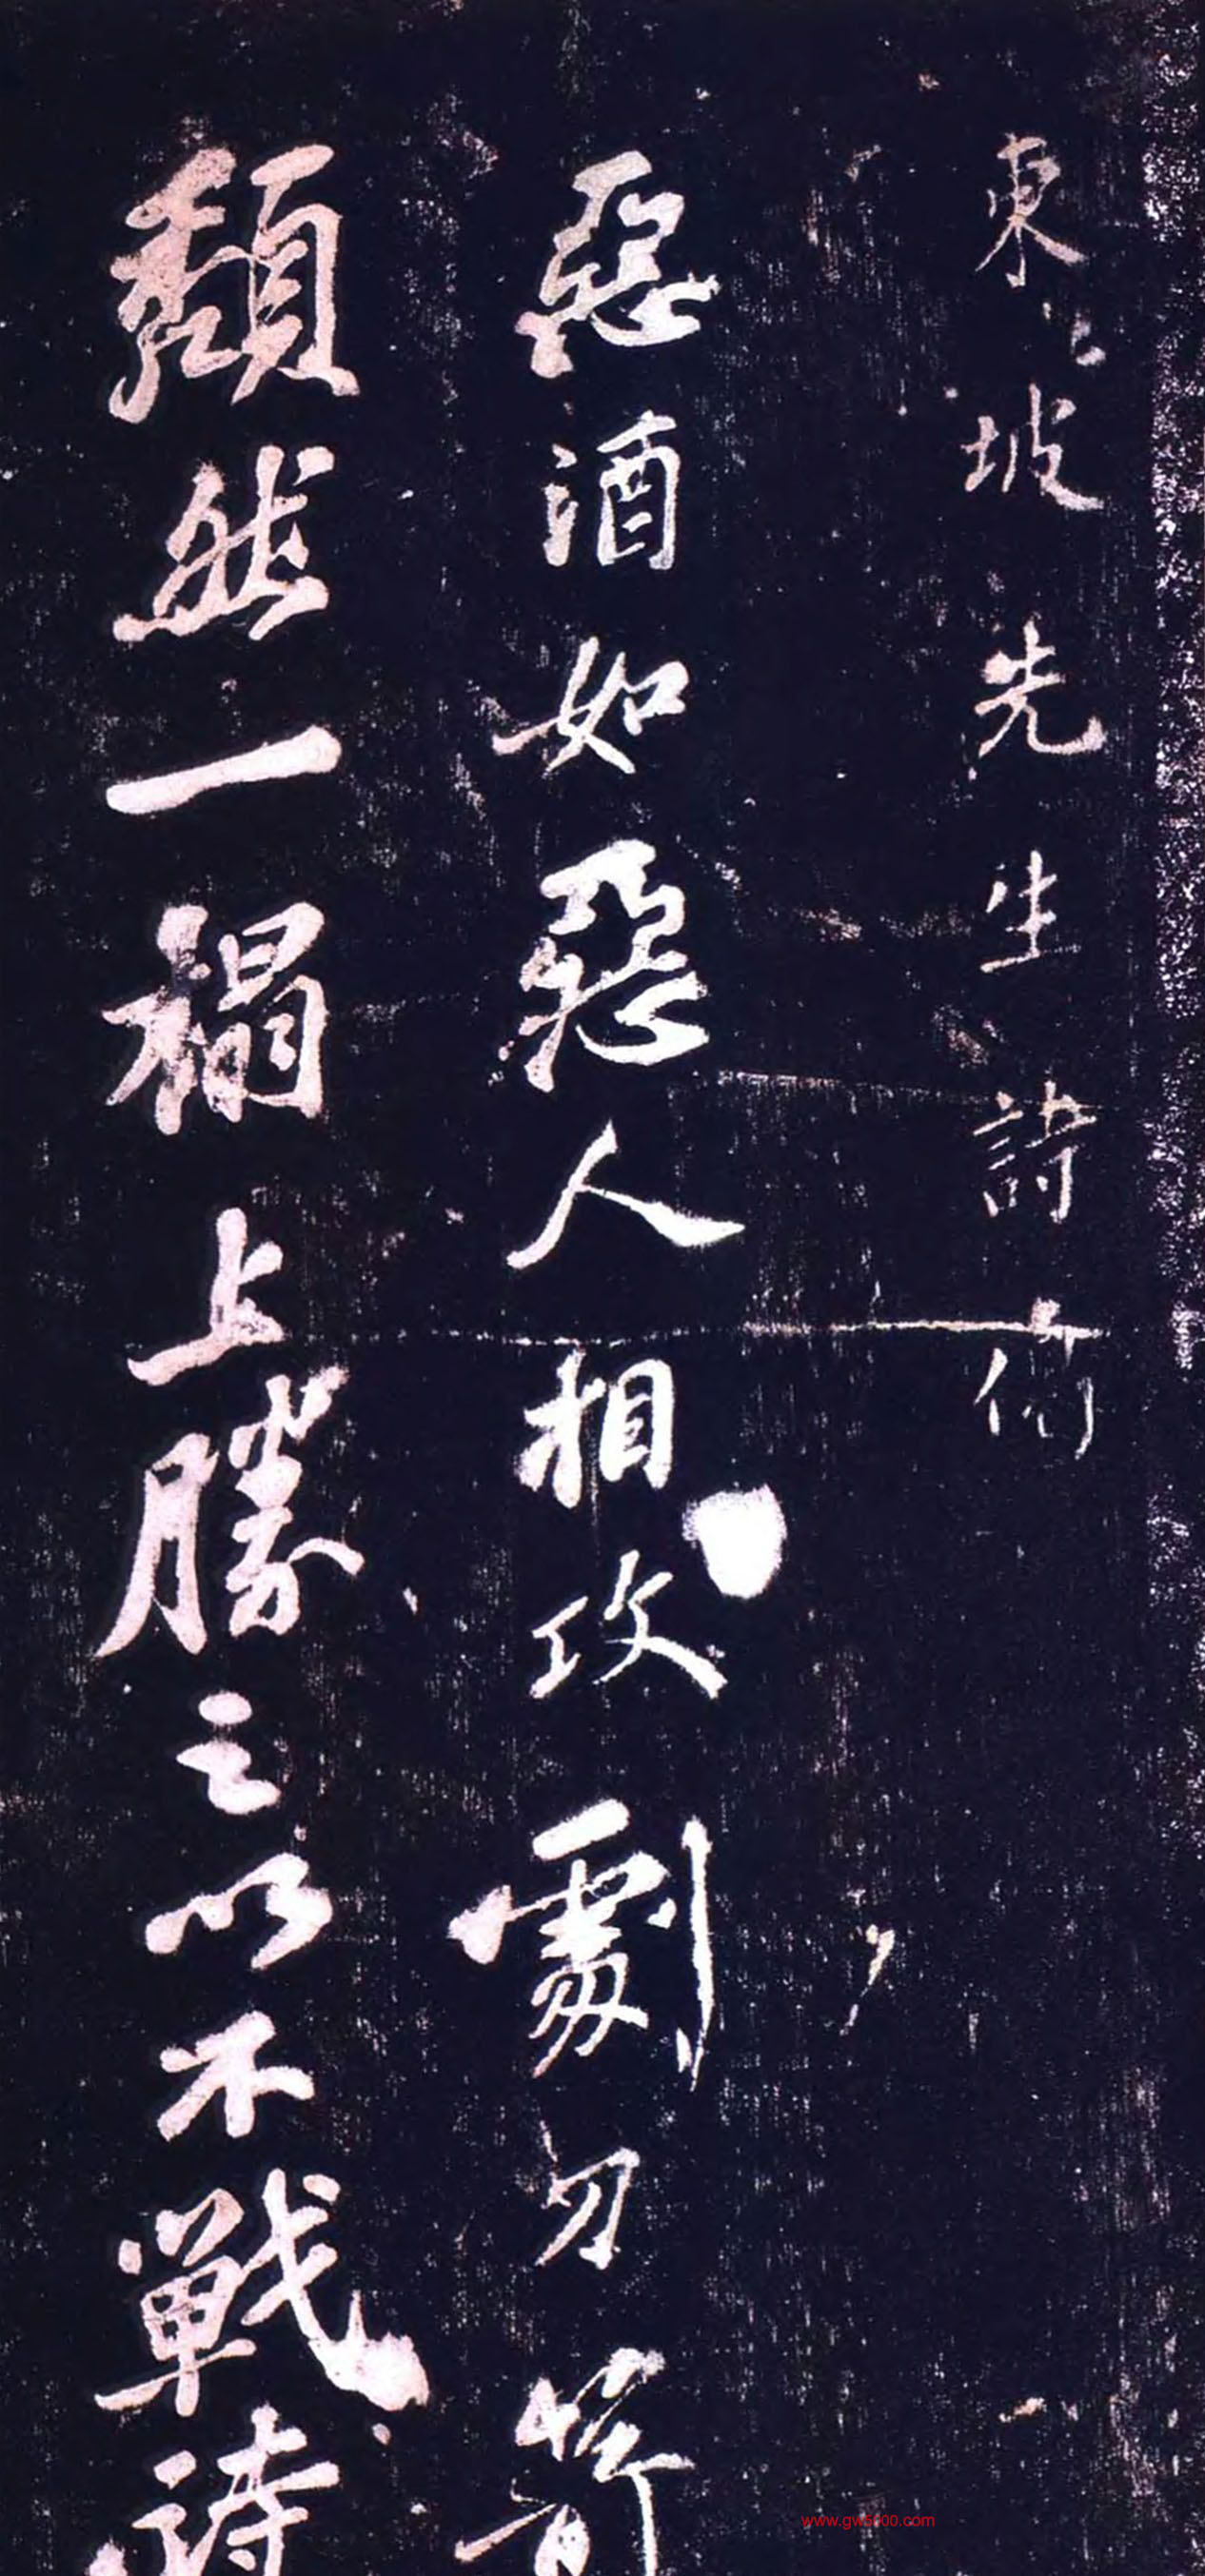 東坡先生詩
惡酒如惡人相攻劇刀箭
頹然一榻上勝之以不戰詩